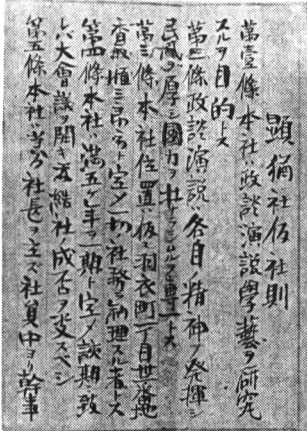 顕猶社仮社則
第壹條本社ハ政談演説學藝ヲ研究
スルヲ目的トス
第二條政談演説ハ各自ノ精神ヲ発揮シ
民風ヲ厚シ國力ヲ壮ナラシムルヲ専一トス
第三條本社位置ハ仮ニ羽衣町一丁目廿一番地
ニ定メ一切ノ社務ヲ納理スル者トス
第四條本社ハ満五ケ年ヲ一期ト定メ該期致
レバ大會議ヲ開キ再結社ノ成否ヲ発スベシ
第五條本社ハ當分社長ヲ主ズ社員中ヨリ幹事